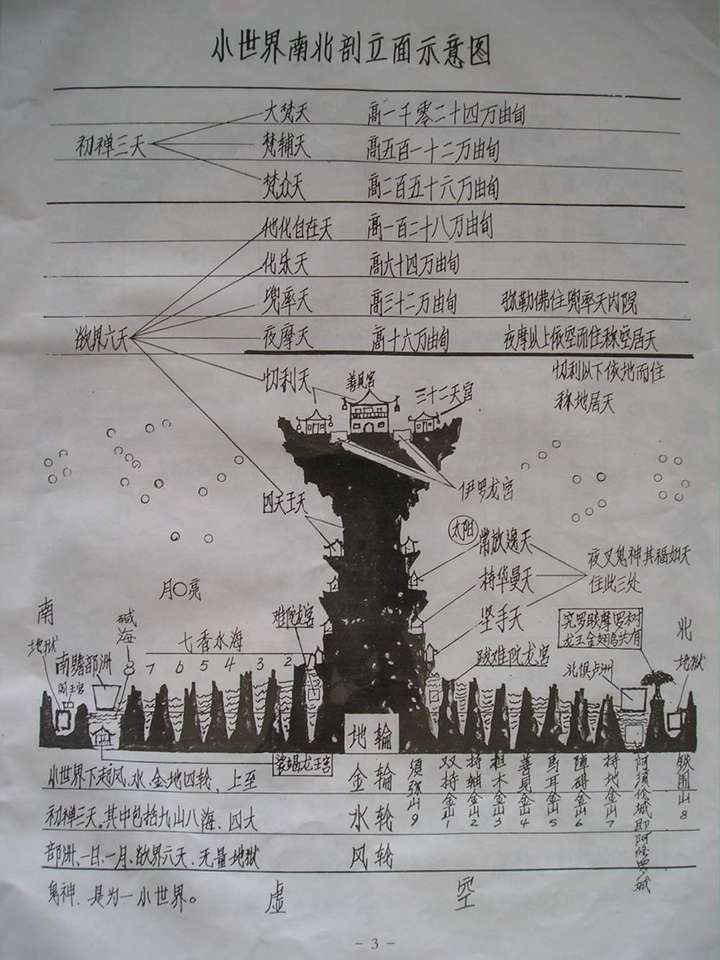 小世界南北剖立面示意图
大梵天 高一千零二十四万由旬
初禅三天 梵辅天 高五百一十二万由旬
梵众天 高二百五十六万由旬
他化自在天 高一百二十八万由旬
化乐天 高六十四万由旬
兜率天 高三十二万由旬 弥勒佛住兜率天内院
欲界六天 夜摩天 高十六万由旬 夜摩以上依空而住称空居天
忉利天 善见宫 三十二天宫 忉利以下依地而住
称地居天
伊罗龙宫
四天王天
太阳 常放逸天
夜叉鬼神其福如天
住此三处
持华曼天
月亮
坚手天
南 碱海 七香水海 难陀龙宫 北
地狱
南赡部洲 7 6 5 4 3 2 跋难陀龙宫 北俱卢洲 地狱
阎王宫 8
娑竭龙王宫
地轮
金轮
水轮
风轮
小世界下起风、水、金、地四轮，上至
初禅三天。其中包括九山八海、四大
部洲、一日、一月、欲界六天、无量地狱
鬼神，是为一小世界。
须弥山9 双持金山1 持轴金山2 担木金山3 善见金山4 马耳金山5 障碍金山6 持地金山7 阿须伦城即阿修罗城 铁围山8
虚 空
- 3 -